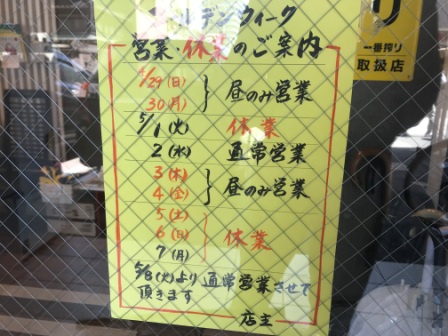 ゴールデンウィーク
営業・休業のご案内
4/29(日)
30(月)
昼のみ営業
5/1(火) 休業
2(水) 通常営業
3(木)
4(金)
昼のみ営業
5(土)
6(日)
7(月)
休業
5/8(火)より通常営業させて
頂きます
店主
一番搾り
取扱店